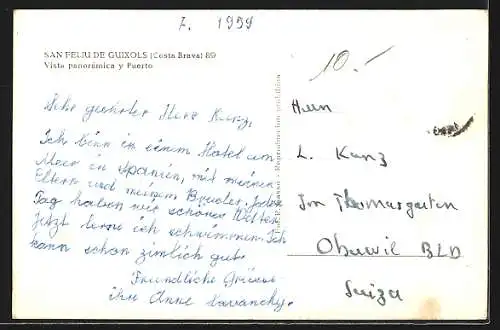 7. 1959
SAN FELIU DE GUIXOLS (Costa Brava) 89
Vista panorámica y Puerto
10.-
Sehr geehrter Herr Kunz,
Ich binn in einem Hotel am
Meer in Spanien, mit meinen
Eltern und meinem Bruder. Jeden
Tag haben wir schönes Wetter.
Jetzt lerne ich schwimmen. Ich
kann schon zimlich gut.
Freundliche Grüsse
ihre Anne
Herrn
L. Kunz
Im Thomasgarten
Oberwil BLD
Suiza
Reproducción prohibida